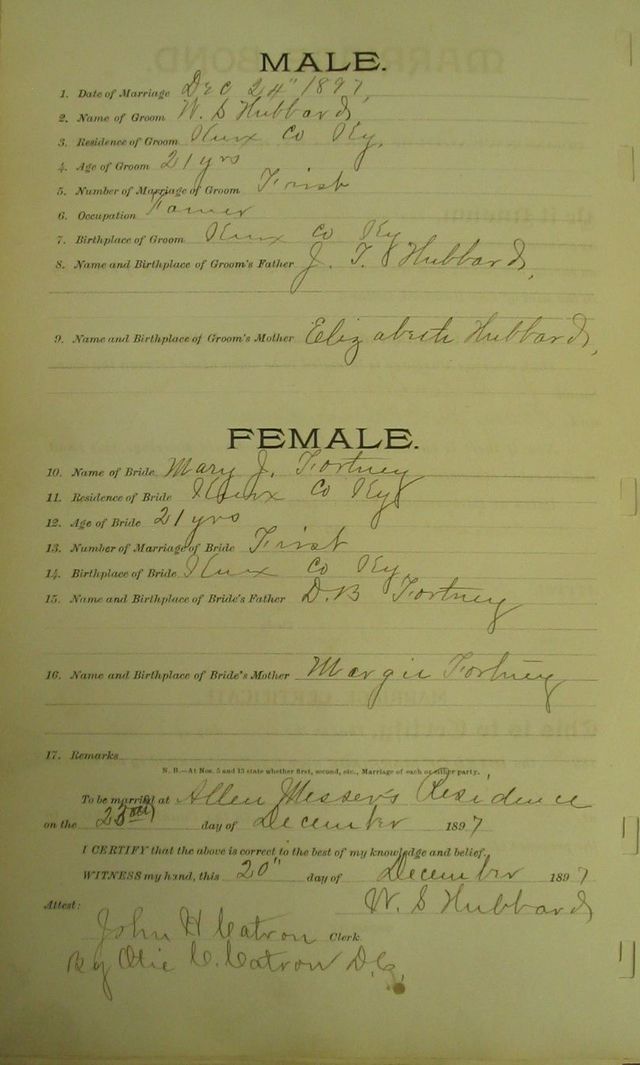 MALE.
1. Date of Marriage Dec 24" 1897,
2. Name of Groom W. S Hubbard,
3. Residence of Groom Knox Co Ky,
4. Age of Groom 21 yrs
5. Number of Marriage of Groom First
6. Occupation Farmer
7. Birthplace of Groom Knox Co Ky
8. Name and Birthplace of Groom's Father J. T. Hubbard,
9. Name and Birthplace of Groom's Mother Elizabeth Hubbard,
FEMALE.
10. Name of Bride Mary J. Fortney
11. Residence of Bride Knox Co Ky
12. Age of Bride 21 yrs
13. Number of Marriage of Bride First
14. Birthplace of Bride Knox Co Ky
15. Name and Birthplace of Bride's Father D. B Fortney
16. Name and Birthplace of Bride's Mother Margie Fortney
17. Remarks
N. B.—At Nos. 5 and 13 state whether first, second, etc., Marriage of each or either party.
To be married at Allen Messers Residence
on the day of December 1897
I CERTIFY that the above is correct to the best of my knowledge and belief.
WITNESS my hand, this 20" day of December 1897
W. S Hubbard
Attest:
John H Catron Clerk
By Olie C. Catron D.C.